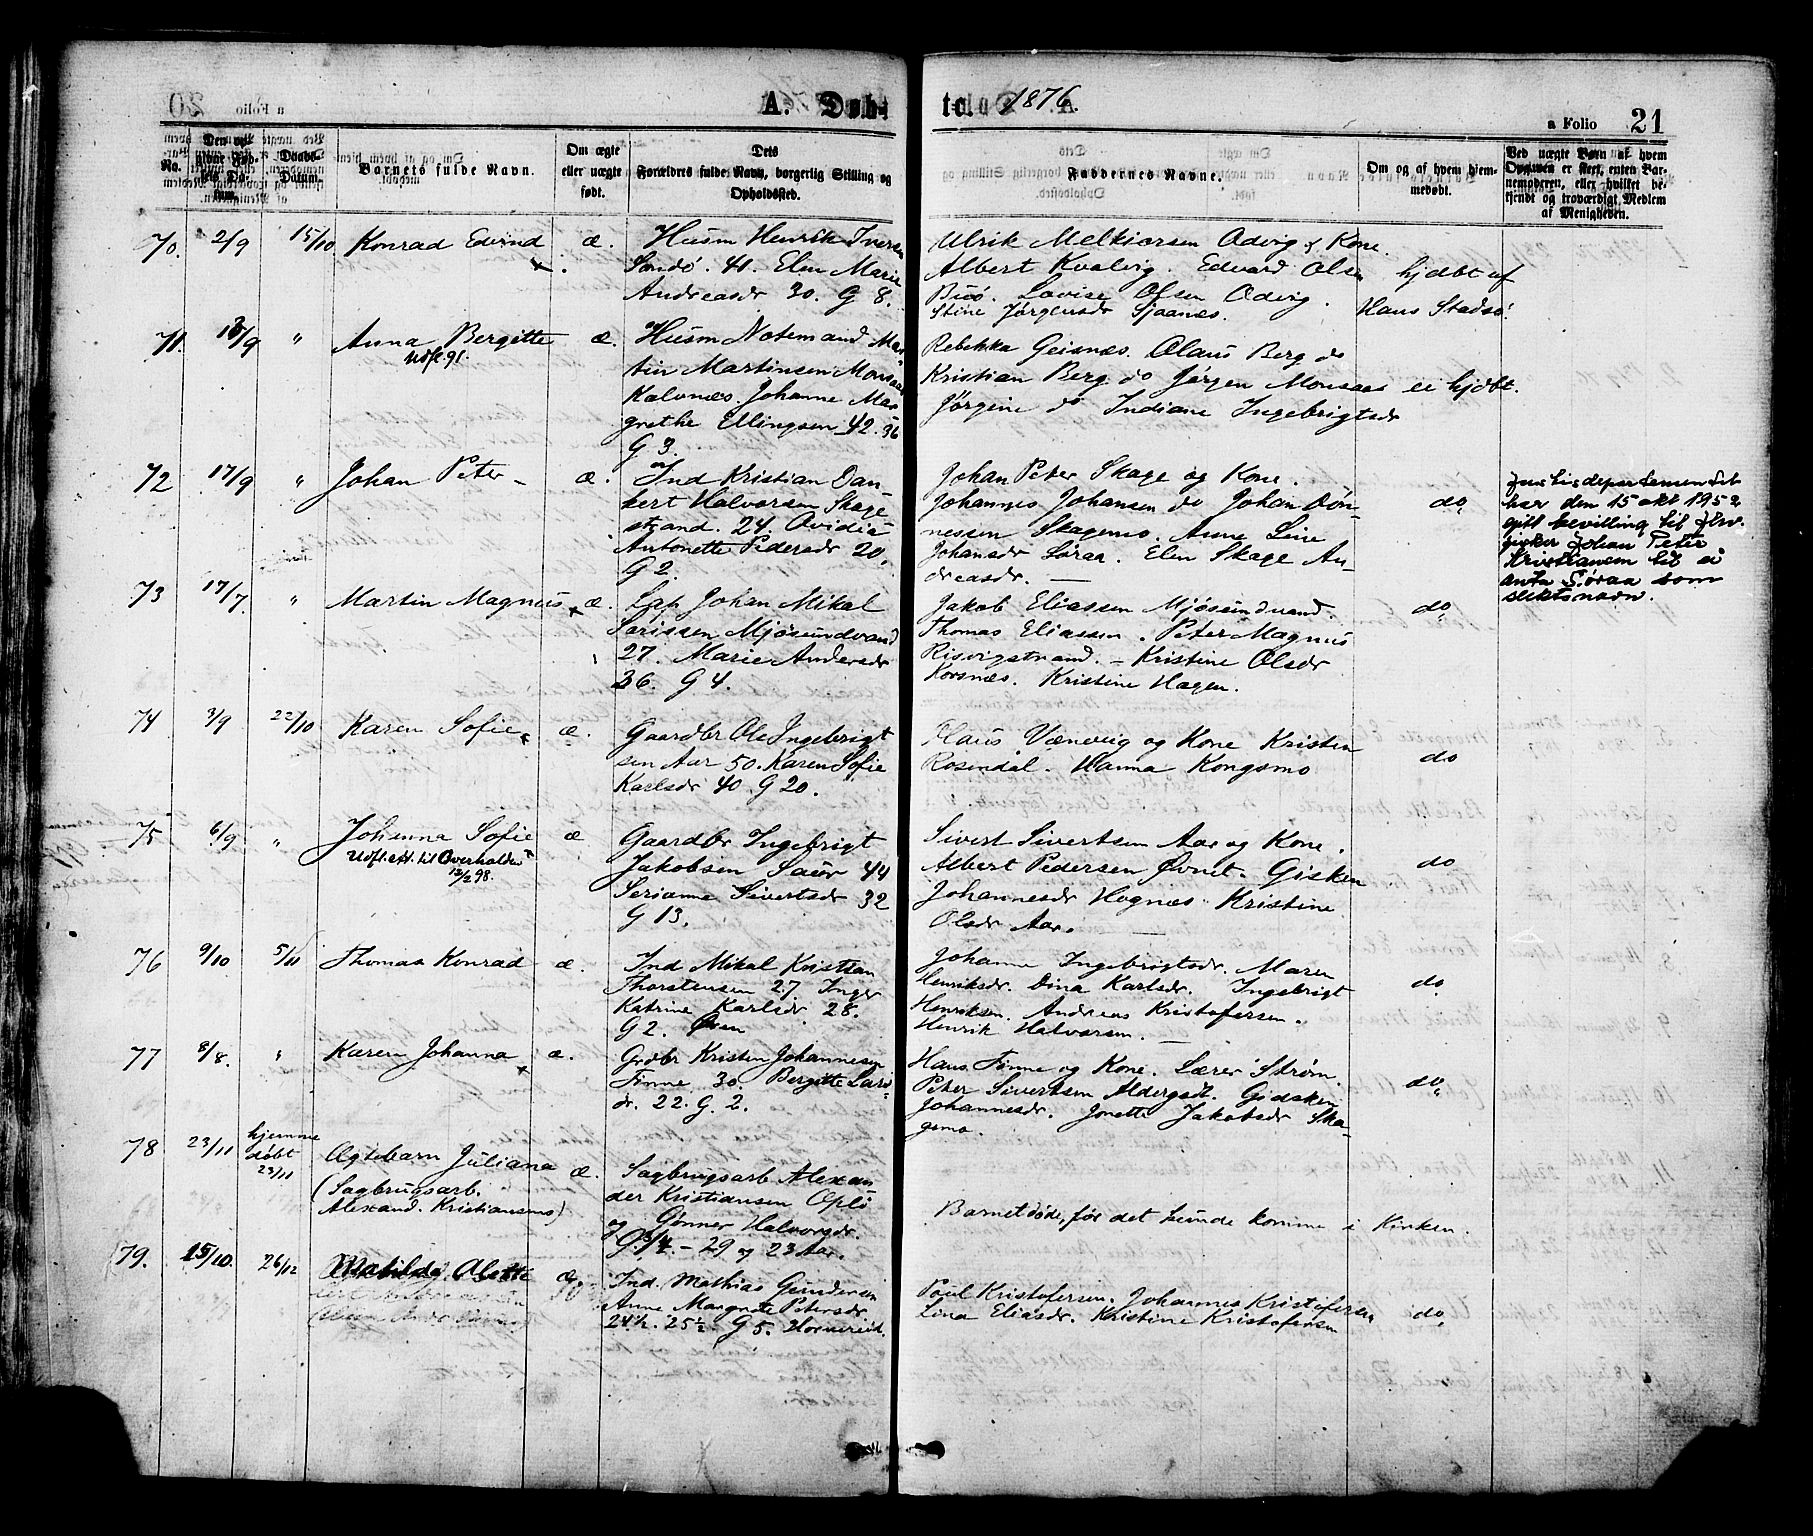 A. Døb-
te. 1876.
a Folio 21
No.
Barnets fulde Navn.
Om ægte
eller uægte
født.
Dets
Forældres fulde Navn, borgerlig Stilling og
Opholdssted.
Faddernes Navne.
Om og af hvem hjem-
medøbt.
Ved uægte Barn af hvem
Opgaven er skeet, enten Bar-
nemoderen, eller hvilket be-
kjendt og troværdigt Medlem
af Menigheden.
70. 2/9 15/10 Konrad Edvind æ. Husm Henrik Iversen
Sandö. 41. Elen Marie
Andreasdr 30. G 8.
Ulrik Melkiorsen Odvig & Kone.
Albert Kvalvig. Edvard Olsen
Buö. Lovise Olsen Odvig.
Stine Jørgensdr Sjaanæs.
hjdbt af
Hans Stadsö
71. 13/9 " Anna Bergitte æ. Husm og Notemand Mar-
Udfl. 91.
tin Martinsen Monsaas
Kalvnæs. Johanne Mar-
grethe Ellingsen 42. 36
G 3.
Rebekka Geisnæs. Olaus Berg do
Kristian Berg do Jørgen Monsaas
Jørgine do Indiane Ingebrigtsdr
ei hjdbt.
72 17/9 " Johan Peter - æ. Ind Kristian Dan-
kert Halvorsen Skage
strand. 24. Ovidia
Antonette Pedersdr 20.
G 2.
Johan Peter Skage og Kone.
Johannes Johansen do Johan Dön-
nessen Skagemo. Anne Line
Johansdr Søraa. Elen Skage An-
dreasdr. —
do.
Justisdepartementet
har den 15 okt 1952
gitt bevilling til Hr.
fisker Johan Peter
Kristiansen til å
anta Søraa som
slektsnavn.
73 17/7. " Martin Magnus æ. Lap Johan Mikal
Larissen Mjösundvand
27. Marie Andersdr
36. G 4.
Jakob Eliassen Mjösundvand.
Thomas Eliassen. Peter Magnus
Risvigstrand. - Kristine Olsdr
Korsnæs. Kristine Hagen.
do
74 3/9 22/10 Karen Sofie æ. Gaardbr Ole Ingebrigt
sen Aar 50. Karen Sofie
Karlsdr 40. G 20.
Klaus Vænvig og Kone Kristen
Rosendal. Hanna Kongsmo
do
75 6/9 " Johanna Sofie æ Gaardbr Ingebrigt
Udfl. att. til Overhalden
12/2 98.
Jakobsen Saur 44
Serianna Sivertsdr 32
G 13.
Sivert Sivertsen Aar og Kone.
Albert Pedersen Øvnet. Gisken
Johannesdr Hognæs. Kristine
Olsdr Aar. —
do
76 9/10 5/11 Thomas Konrad æ. Ind Mikal Kristian
Thorstensen 27 Inger
Katrine Karlsdr 28.
G 2. Øien
Johanna Ingebrigtsdr. Maren
Henriksdr. Dina Karlsdr. Ingebrigt
Henriksen. Andreas Kristofersen.
Henrik Halvorsen. —
do.
77 8/8. " Karen Johanna æ. Grdbr Kristen Johannesen
Finne 30. Bergitte Lars-
dr. 22. G. 2.
Hans Finne og Kone. Lærer Strøm.
Peter Sivertsen Aldergdt. Gidsken
Johannesdr. Jonette Jakobsdr Ska-
gemo.
do
78 23/11 hjemme
døbt
23/11
Ægtebarn Juliana æ.
(Sagbrugsarb.
Alexand. Kristiansens)
Sagbrugsarb Alexan
der Kristiansen Oplö
og Gønner Halvorsdr.
G. 3/4 - 29 og 23 Aar.
Barnet døde, før det kunde komme i Kirken.
79. 15/10. 26/12 Matilde Alette æ. Ind. Mathias Gundersen
Anne Margrete Petersdr
24½. 25½ G 5. Horvereid.
Paul Kristofersen. Johannes Kristofersen
Lina Eliasdr. Kristine Kristofersen
do.